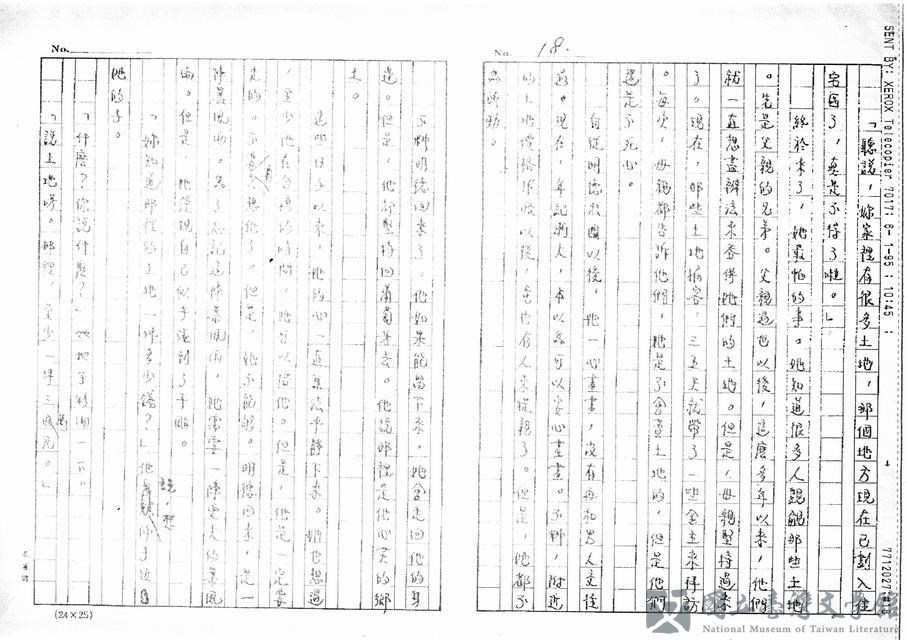 No. 18.
「聽說，妳家裡有很多土地，那個地方現在已劃入住
宅區了，真是不得了啦。」
終於來了，她最怕的事。她知道很多人覬覦那些土地
。先是父親的兄弟。父親過世以後，這麼多年以來，他們
就一直想盡辦法來吞併她們的土地。但是，母親堅持過來
了。現在，那些土地掮客，三五天就帶了一些金主來拜訪
。每次，母親都告訴他們，她是不會賣土地的，但是他們
還是不死心。
自從明德出國以後，她一心畫畫，沒有再和男人交往
過。現在，年記漸大，本以為可以安心畫畫。不料，附近
的土地價格以後，也有人來提親了。但是，她都不
為所動。
No.
不料明德回來了，他如果能留下來，她會走回他的身
邊。但是，他卻堅持回葡萄牙去。他說那裡是他心灵的鄉
土。
這些日子以來，她的心一直無法平靜下來。她也想過
，至少他在台灣的時間，她可以陪他。但是，他是一定要
走的。不想他了。但是，她不能夠。明德回來，是一
陣暴風雨。為了忘記這陣暴風雨，她需要一陣更大的暴風
雨。但是，她發現自己似乎張錯了手腳。
「妳知道那裡的土地一坪多少錢？」他說，想伸手近
她的手。
「什麼？你說什麼？」她她予移開一下。
「說土地呀。那裡，至少一坪三萬元。」
(24×25)
SENT BY: XEROX Telecopier 7017; 6- 1-95 ; 10:45 ;
國立臺灣文學館
National Museum of Taiwan Literature